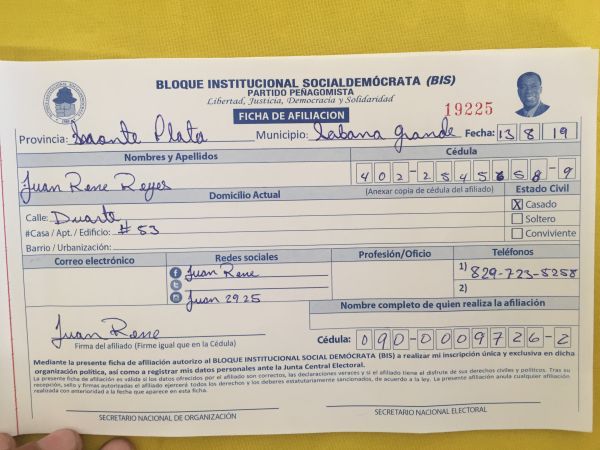 BLOQUE INSTITUCIONAL SOCIALDEMÓCRATA (BIS)
PARTIDO PEÑAGOMISTA
Libertad, Justicia, Democracia y Solidaridad
FICHA DE AFILIACION
19225
Provincia: Monte Plata Municipio: Sabana Grande Fecha: 13 8 19
Nombres y Apellidos Cédula
Juan Rene Reyes 402-2545658-9
Domicilio Actual (Anexar copia de cédula del afiliado) Estado Civil
Calle: Duarte X Casado
#Casa / Apt. / Edificio: # 53 Soltero
Barrio / Urbanización: Conviviente
Correo electrónico Redes sociales Profesión/Oficio Teléfonos
Juan Rene 1) 829-723-5258
2)
Juan 2925
Nombre completo de quien realiza la afiliación
Juan Rene
Firma del afiliado (Firme igual que en la Cédula) Cédula: 090-0009726-2
Mediante la presente ficha de afiliación autorizo al BLOQUE INSTITUCIONAL SOCIAL DEMÓCRATA (BIS) a realizar mi inscripción única y exclusiva en dicha
organización política, así como a registrar mis datos personales ante la Junta Central Electoral.
La presente ficha de afiliación es válida si los datos ofrecidos por el afiliado son correctos, las declaraciones veraces y si el afiliado tiene el disfrute de sus derechos civiles y políticos. Tras su
recepción, sello y firmas autorizadas el afiliado ejercerá todos los derechos y los deberes estatutariamente sancionados, de acuerdo a la ley. La presente afiliación anula cualquier afiliación
realizada con anterioridad a la fecha que aparece en esta ficha.
SECRETARIO NACIONAL DE ORGANIZACIÓN SECRETARIO NACIONAL ELECTORAL